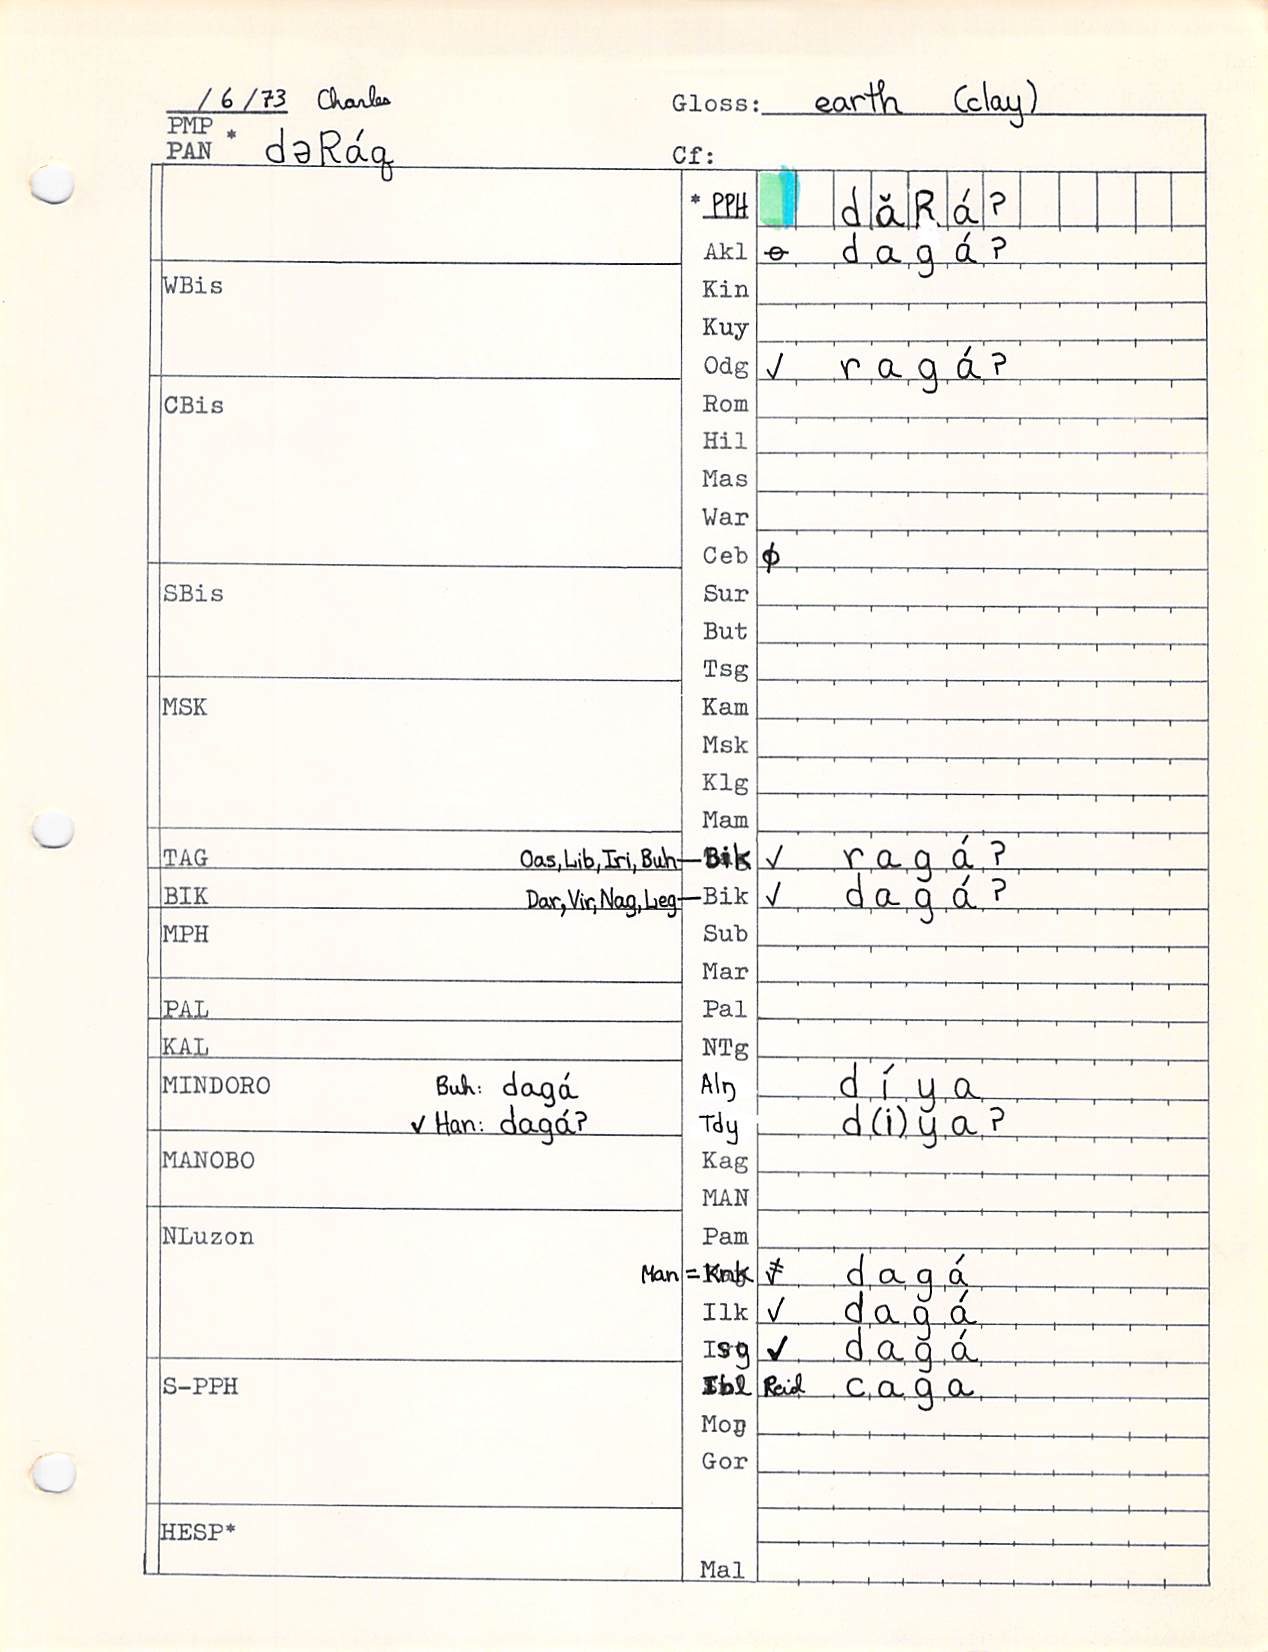 /6/73 Charles Gloss: earth (clay)
PMP
PAN * dəRáq Cf:
* PPH dăRá?
Akl ɵ dagá?
WBis Kin
Kuy
Odg ✓ ragá?
CBis Rom
Hil
Mas
War
Ceb ϕ
SBis Sur
But
Tsg
MSK Kam
Msk
Klg
Mam
TAG Oas, Lib, Iri, Buh — Bik ✓ ragá?
BIK Dar, Vir, Nag, Leg — Bik ✓ dagá?
MPH Sub
Mar
PAL Pal
KAL NTg
MINDORO Buh: dagá Alŋ díya
✓ Han: dagá? Tdy d(i)ya?
MANOBO Kag
MAN
NLuzon Pam
Man = Knk dagá
Ilk ✓ dagá
Isg ✓ dagá
S-PPH Ibl Reid caga
Moŋ
Gor
HESP*
Mal